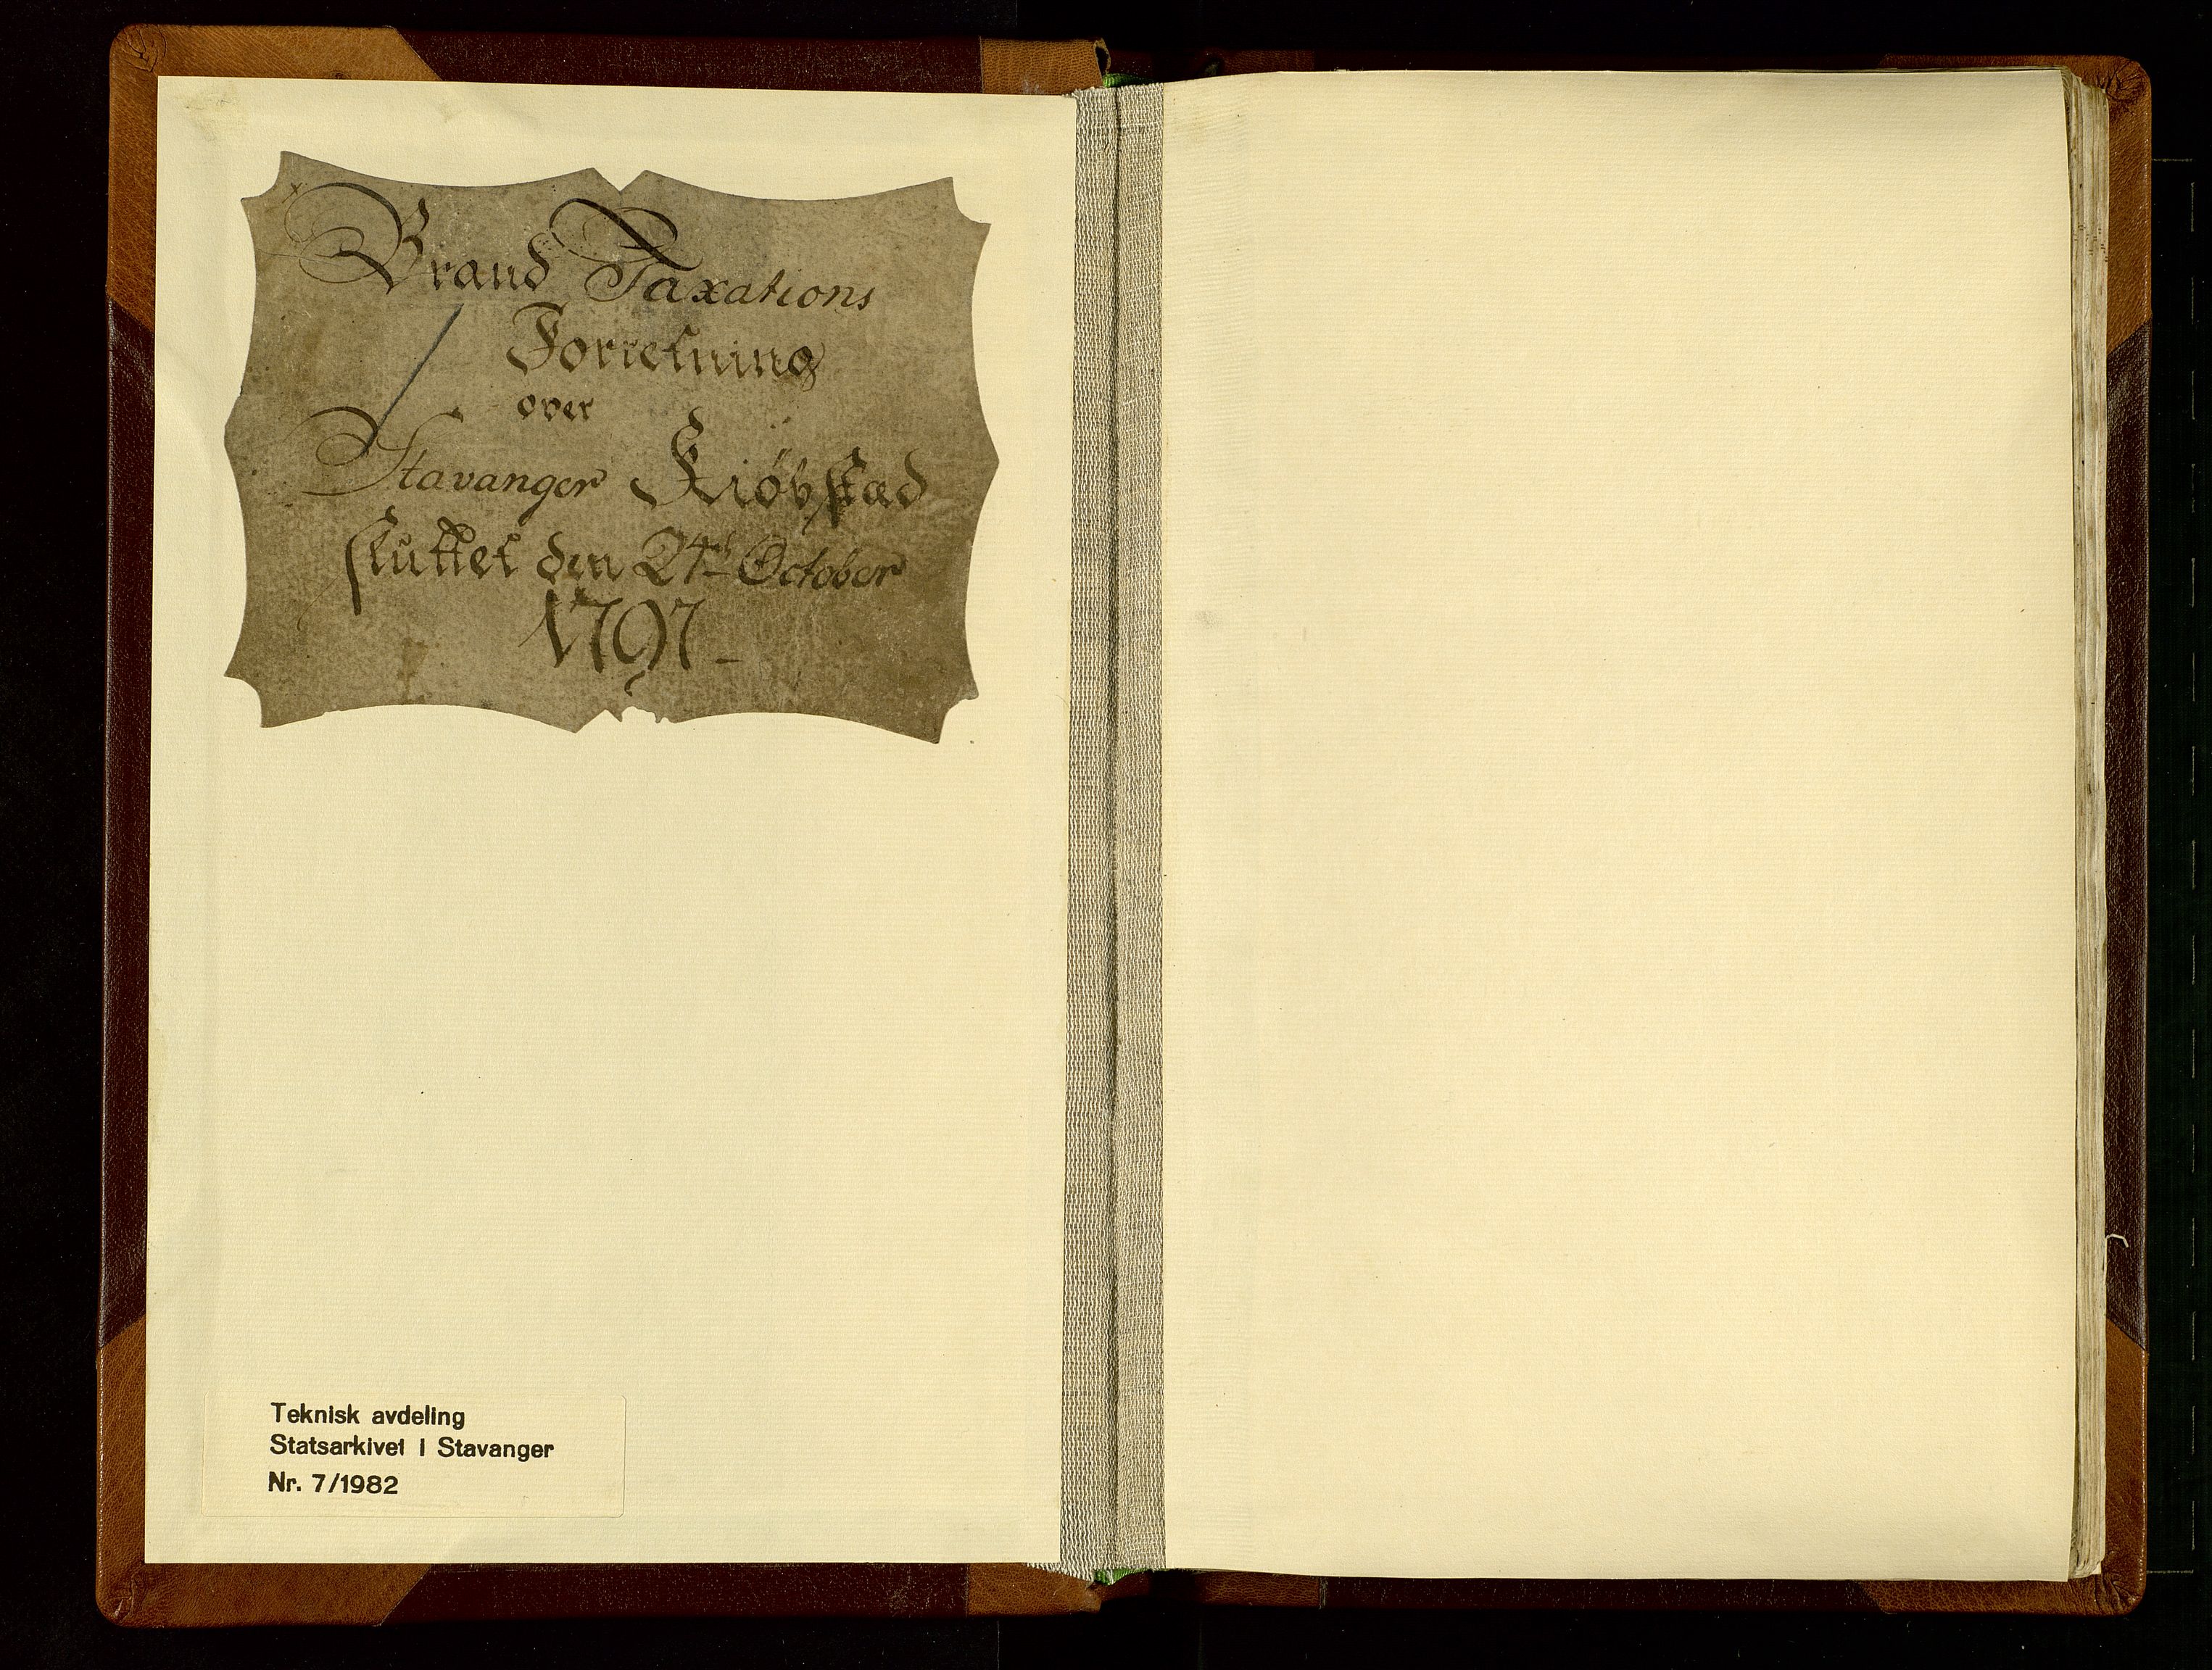 Brand Taxations
Forretning
over
Stavanger Kiøbstad
sluttet den 24de October
1797
Teknisk avdeling
Statsarkivet i Stavanger
Nr. 7/1982